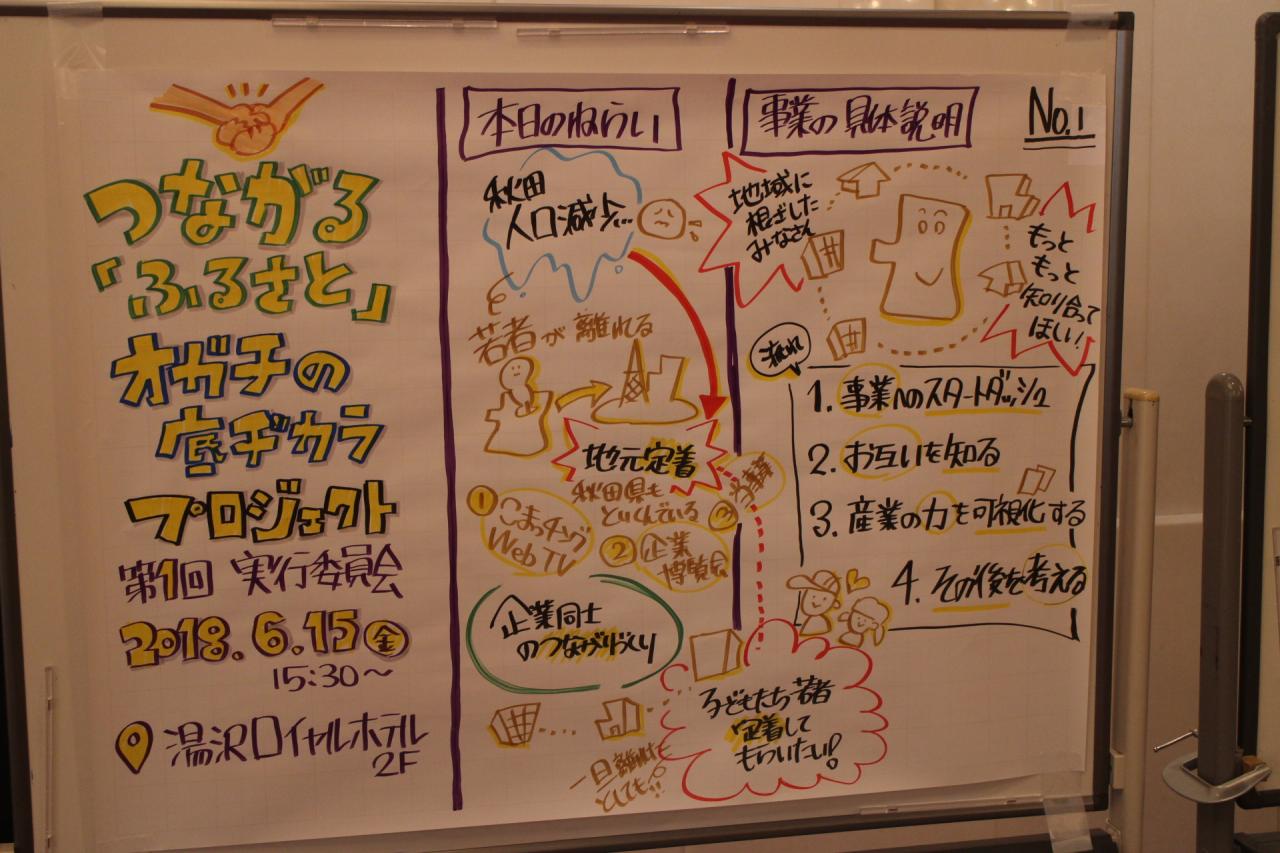 つながる
「ふるさと」
オガチの
底ヂカラ
プロジェクト
第1回 実行委員会
2018.6.15㊎
15:30〜
湯沢ロイヤルホテル
2F
本日のねらい
秋田
人口減少...
若者が離れる
地元定着
秋田県も
とりくんでいる
①
こまっチング
Web TV
②
企業
博覧会
③
企業同士
のつながりづくり
一旦離れた
としても!!
子どもたち若者
定着して
もらいたい!
事業の具体説明
No.1
地域に
根ざした
みなさん
もっと
もっと
知り合って
ほしい!
流れ
1. 事業へのスタートダッシュ
2. お互いを知る
3. 産業の力を可視化する
4. その後を考える